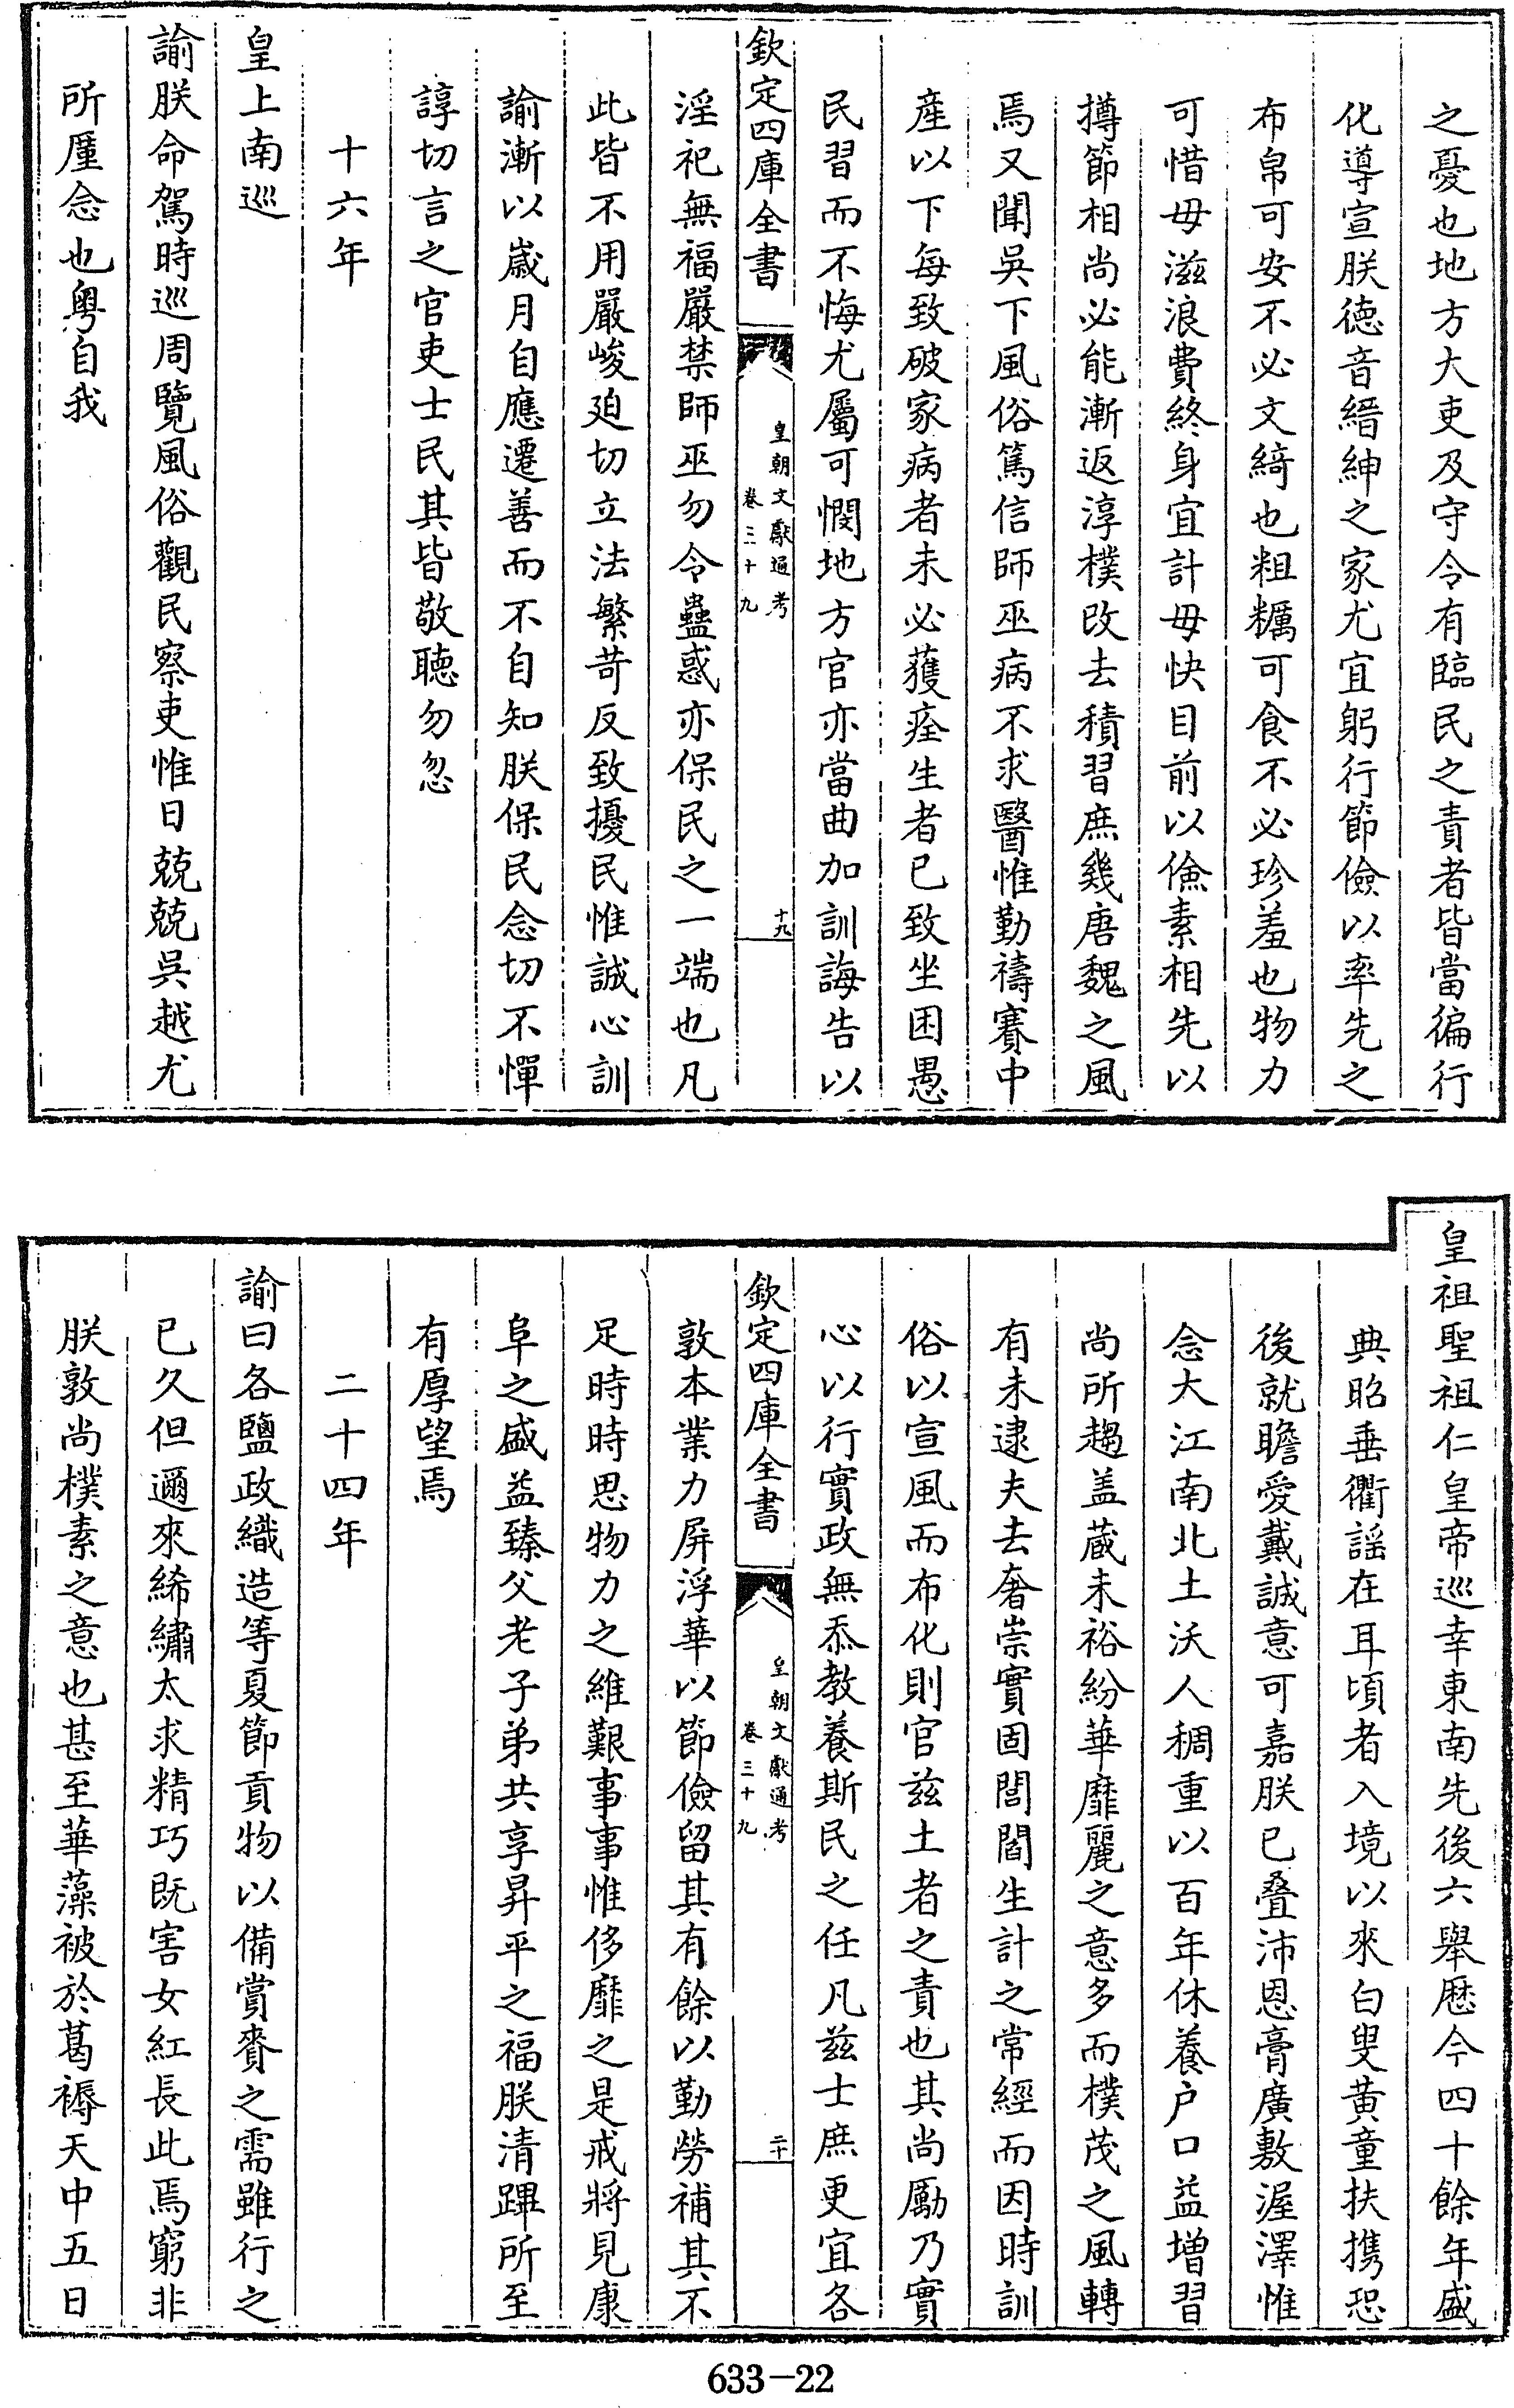 之憂也地方大吏及守令有臨民之責者皆當徧行
化導宣朕德音縉紳之家尤宜躬行節儉以率先之
布帛可安不必文綺也粗糲可食不必珍羞也物力
可惜毋滋浪費終身宜計毋快目前以儉素相先以
撙節相尚必能漸返淳樸改去積習庶幾唐魏之風
焉又聞吳下風俗篤信師巫病不求醫惟勤禱賽中
產以下每致破家病者未必獲痊生者已致坐困愚
民習而不悔尤屬可憫地方官亦當曲加訓誨告以
欽定四庫全書
皇朝文獻通考
卷三十九
十九
淫祀無福嚴禁師巫勿令蠱惑亦保民之一端也凡
此皆不用嚴峻廹切立法繁苛反致擾民惟誠心訓
諭漸以嵗月自應遷善而不自知朕保民念切不憚
諄切言之官吏士民其皆敬聽勿忽
十六年
皇上南巡
諭朕命駕時巡周覽風俗觀民察吏惟日兢兢吳越尤
所厪念也粵自我
皇祖聖祖仁皇帝巡幸東南先後六舉歷今四十餘年盛
典昭垂衢謡在耳頃者入境以來白叟黄童扶携恐
後就瞻愛戴誠意可嘉朕已疊沛恩膏廣敷渥澤惟
念大江南北土沃人稠重以百年休養户口益增習
尚所趨盖藏未裕紛華靡麗之意多而樸茂之風轉
有未逮夫去奢崇實固閭閻生計之常經而因時訓
俗以宣風而布化則官兹土者之責也其尚勵乃實
心以行實政無忝教養斯民之任凡兹士庶更宜各
欽定四庫全書
皇朝文獻通考
卷三十九
二十
敦本業力屏浮華以節儉留其有餘以勤勞補其不
足時時思物力之維艱事事惟侈靡之是戒將見康
阜之盛益臻父老子弟共享昇平之福朕清蹕所至
有厚望焉
二十四年
諭曰各鹽政織造等夏節貢物以備賞賚之需雖行之
已久但邇來絺繡太求精巧既害女紅長此焉窮非
朕敦尚樸素之意也甚至華藻被於葛褥天中五日
633-22